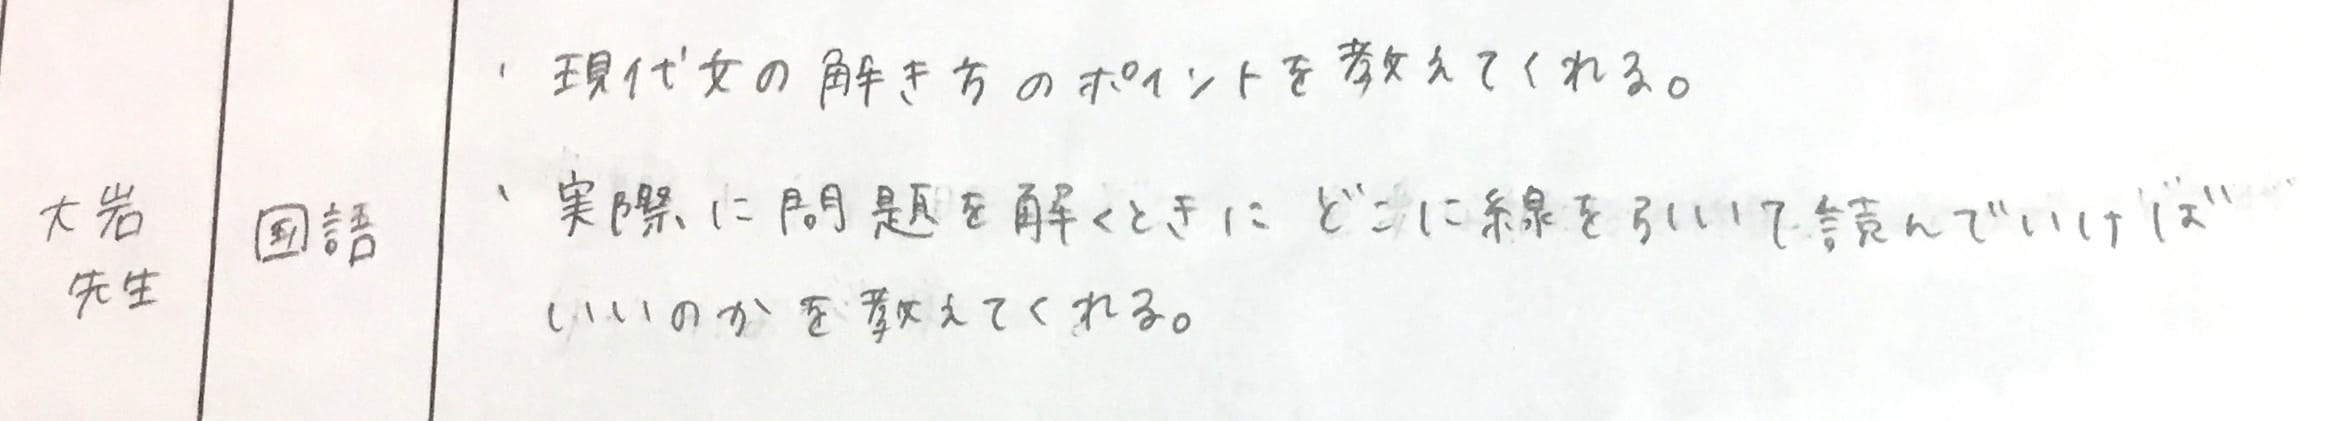 大岩
先生
国語
・現代文の解き方のポイントを教えてくれる。
・実際に問題を解くときにどこに線を引いて読んでいけば
いいのかを教えてくれる。